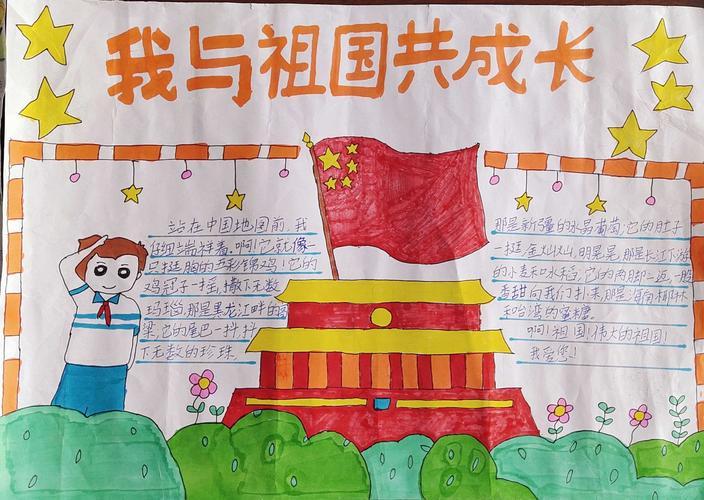 我与祖国共成长
站在中国地图前,我
仔细端祥着。啊!它就像一
只挺胸的五彩锦鸡!它的
鸡冠子一摇,撒下无数
玛瑙,那是黑龙江畔的高
梁;它的尾巴一抖,抖
下无数的珍珠
那是新疆的水晶葡萄;它的肚子
一挺,金灿灿,明晃晃,那是长江下游
的小麦和水稻;它的两脚一迈,一股
香甜向我们扑来,那是海南椰林
和哈
的蜜糖。
啊!祖国,伟大的祖国!
我爱您!